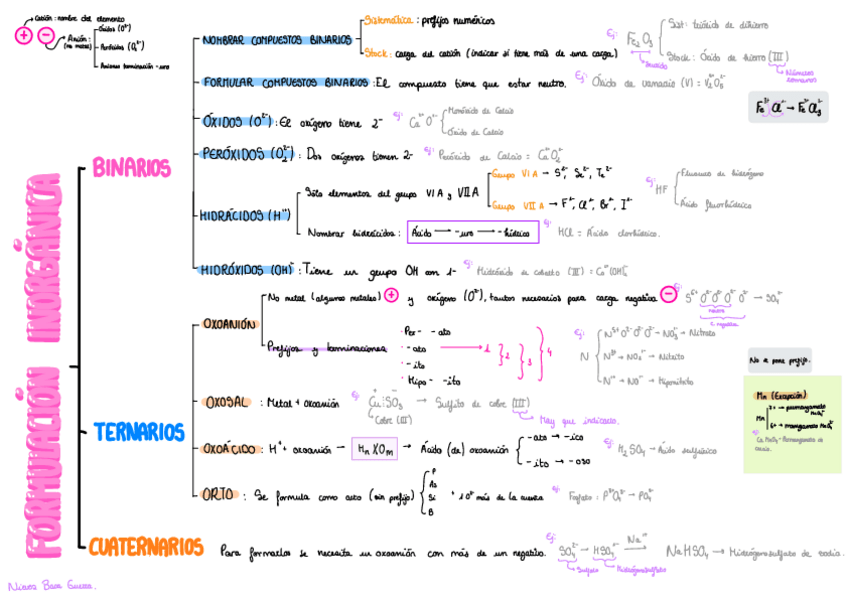 Catión : nombre del elemento
Anión : (no metal)
Óxidos (O²⁻)
Peróxidos (O₂²⁻)
Aniones terminación -uro
FORMULACIÓN INORGÁNICA
BINARIOS
NOMBRAR COMPUESTOS BINARIOS
Sistemática : prefijos numéricos
Stock : carga del catión (indicar si tiene más de una carga)
Ej: Fe₂O₃
Sist: trióxido de dihierro
Stock: Óxido de hierro (III)
Números romanos
FORMULAR COMPUESTOS BINARIOS : El compuesto tiene que estar neutro.
Ej: Óxido de vanadio (V) = V₂O₅
ÓXIDOS (O²⁻) : El oxígeno tiene 2-
Ej: Ca²⁺O²⁻
Monóxido de Calcio
Óxido de Calcio
PERÓXIDOS (O₂²⁻) : Dos oxígenos tienen 2-
Ej: Peróxido de Calcio = CaO₂
HIDRÁCIDOS (H⁺)
Sólo elementos del grupo VIA y VIIA
Grupo VIA → S²⁻, Se²⁻, Te²⁻
Grupo VIIA → F⁻, Cl⁻, Br⁻, I⁻
Ej: HF
Fluoruro de hidrógeno
Ácido fluorhídrico
Nombrar hidrácidos : Ácido → -uro → -hídrico
Ej: HCl = Ácido clorhídrico.
HIDRÓXIDOS (OH)⁻ : Tiene un grupo OH con 1-
Ej: Hidróxido de cobalto (III) = Co(OH)₃
TERNARIOS
OXOANIÓN
No metal (algunos metales) + y oxígeno (O²⁻), tantos necesarios para carga negativa -
Ej: S⁶⁺ O²⁻ O²⁻ O²⁻ O²⁻ → SO₄²⁻
neutro
c. negativa
Prefijos y terminaciones
Per- -ato
-ato
-ito
Hipo- -ito
1 2 3 4
Ej: N
N⁵⁺O²⁻O²⁻O²⁻ → NO₃⁻ → Nitrato
N³⁺ → NO₂⁻ → Nitrito
N¹⁺ → NO⁻ → Hiponitrito
No se pone prefijo.
Mn (Excepción)
Mn
7+ → permanganato MnO₄⁻
6+ → manganato MnO₄²⁻
OXOSAL : Metal + oxoanión
→ Sulfito de cobre
Cobre
Hay que indicarlo.
OXOÁCIDO : H⁺ + oxoanión → HₙXOₘ → Ácido (de) oxoanión
-ato → -ico
-ito → -oso
Ej: H₂SO₄ → Ácido sulfúrico
ORTO : Se formula como orto (sin prefijo)
P
As
Si
B
+ 1 O²⁻ más de la cuenta
Ej: Fosfato : → PO₄³⁻
CUATERNARIOS
Para formarlos se necesita un oxoanión con más de un negativo.
Ej: SO₄²⁻ → HSO₄⁻ Na⁺ → NaHSO₄ → Hidrogenosulfato de sodio.
Sulfato
Hidrogenosulfato